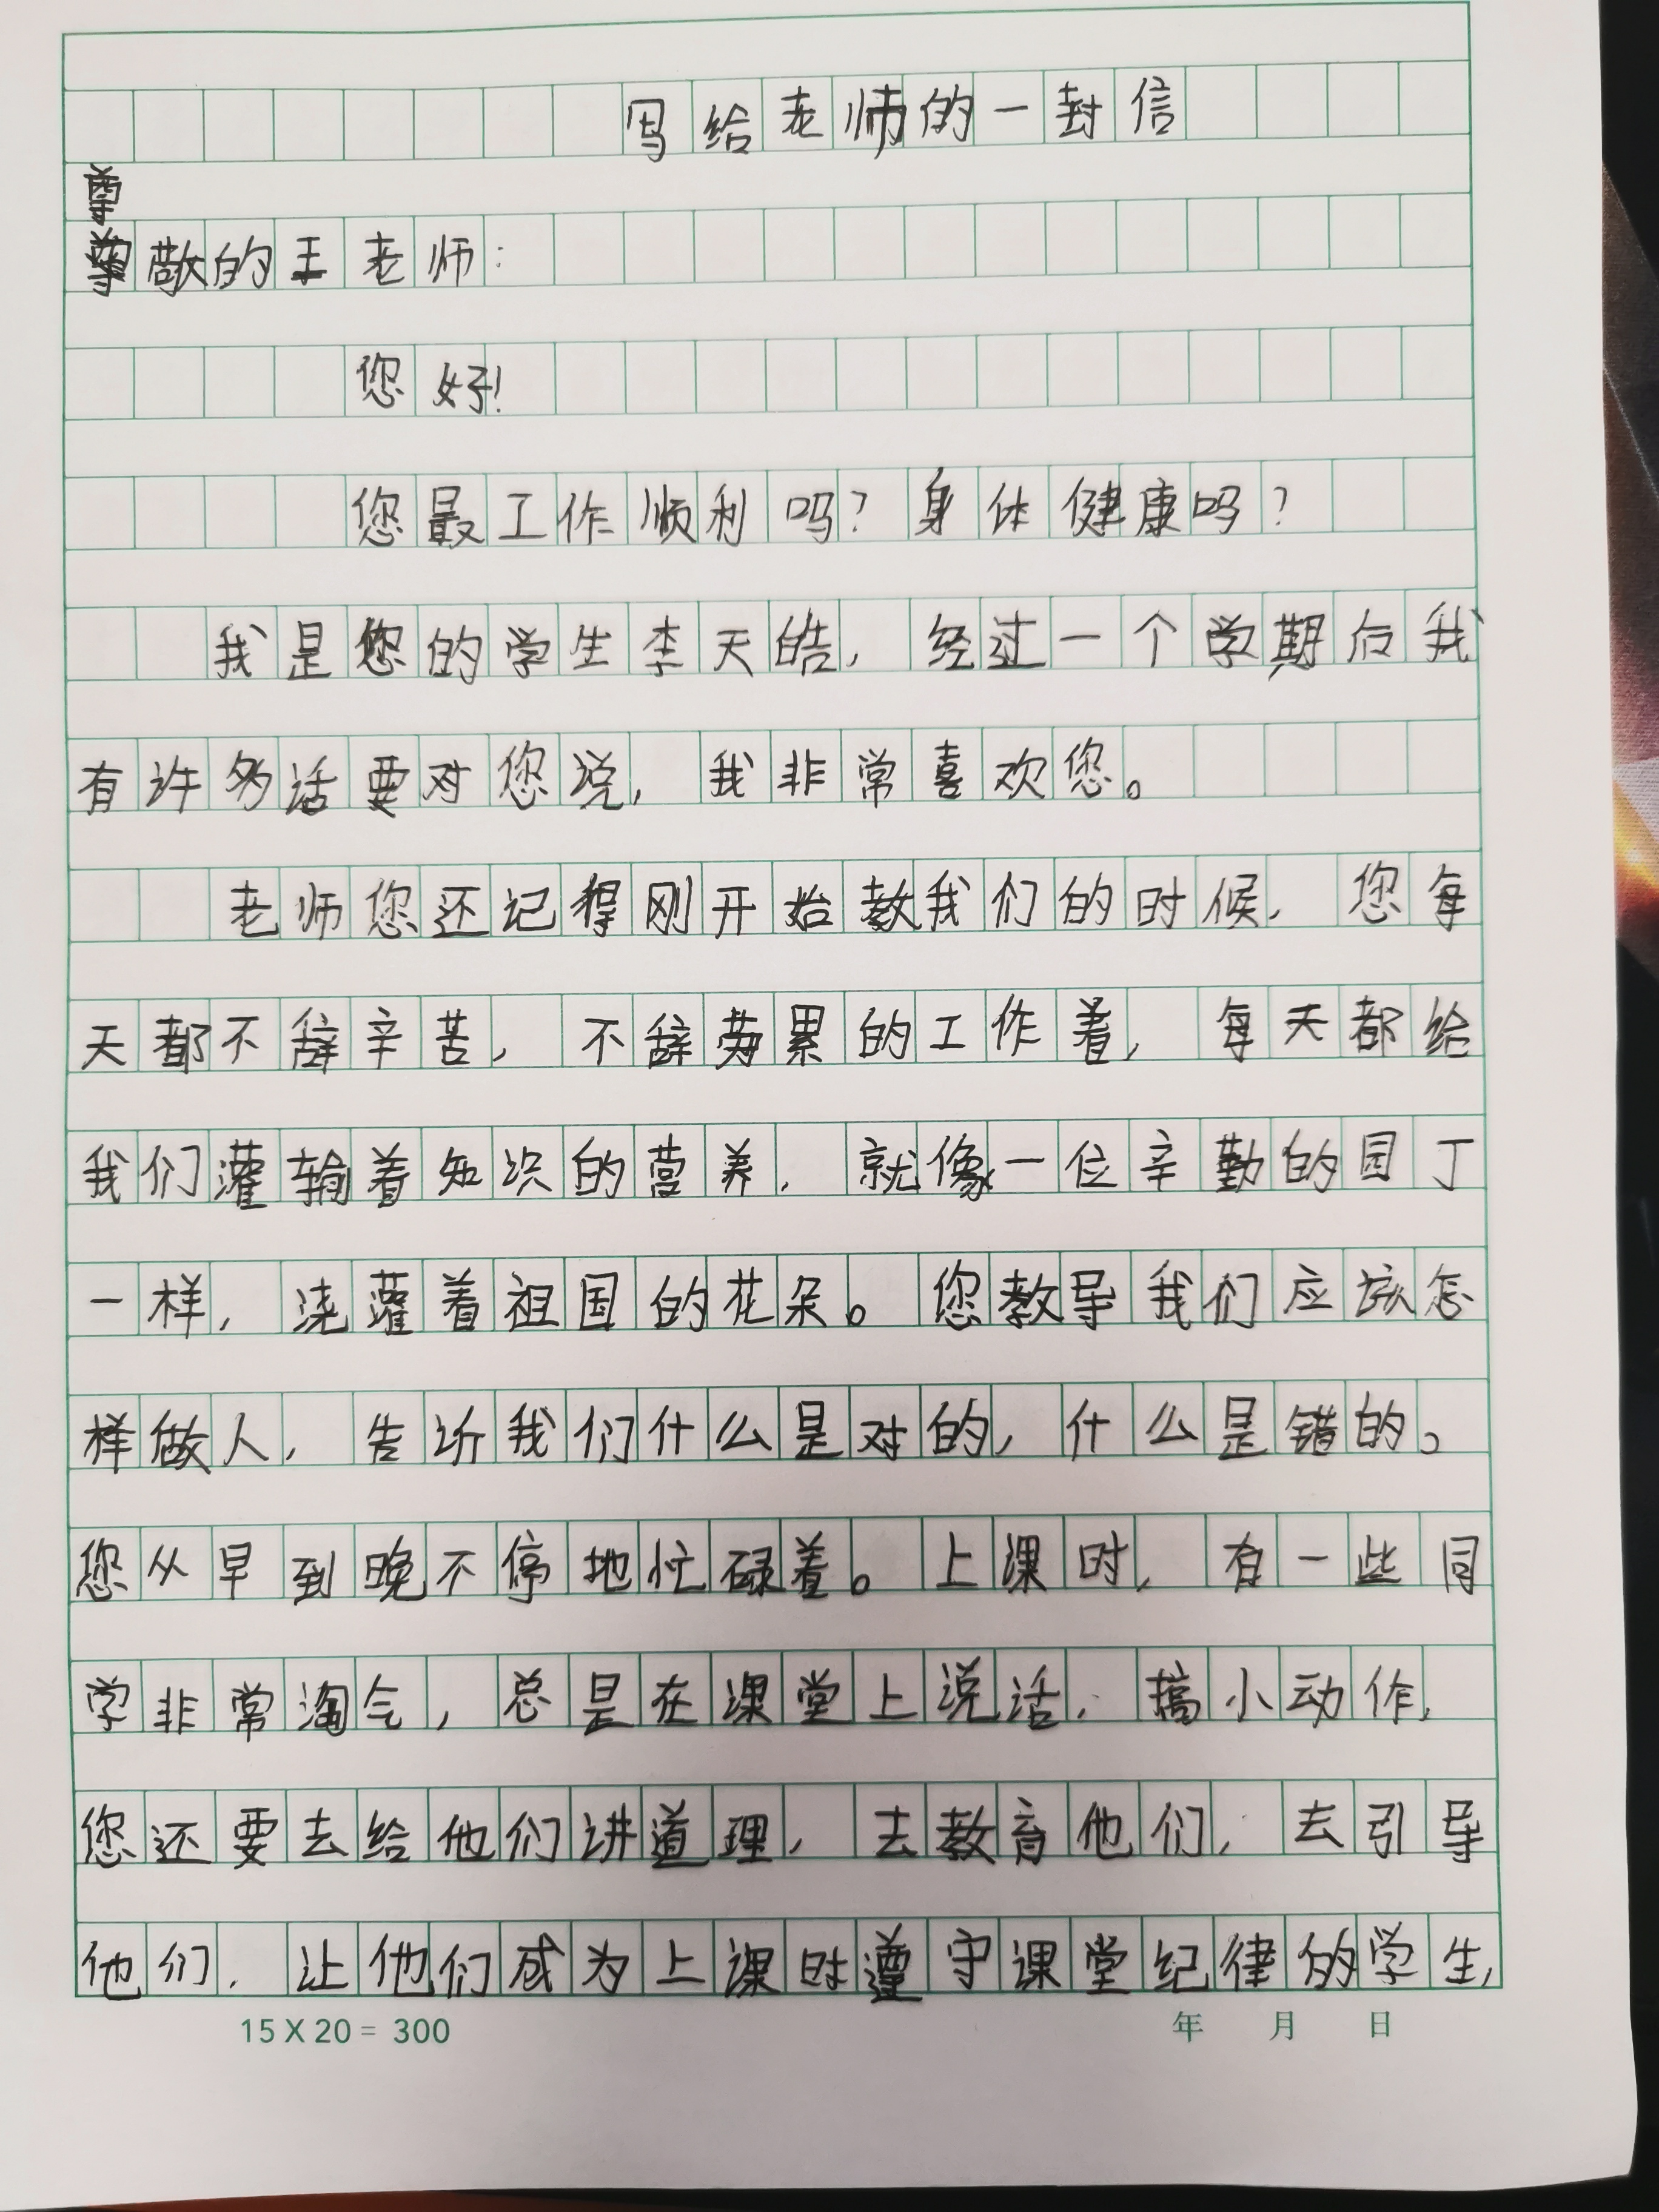 写给老师的一封信
尊
尊敬的王老师：
您好！
您最工作顺利吗？身体健康吗？
我是您的学生李天皓，经过一个学期后我
有许多话要对您说，我非常喜欢您。
老师您还记得刚开始教我们的时候，您每
天都不辞辛苦，不辞劳累的工作着，每天都给
我们灌输着知识的营养，就像一位辛勤的园丁
一样，浇灌着祖国的花朵。您教导我们应该怎
样做人，告诉我们什么是对的，什么是错的。
您从早到晚不停地忙碌着。上课时，有一些同
学非常淘气，总是在课堂上说话，搞小动作，
您还要去给他们讲道理，去教育他们，去引导
他们，让他们成为上课时遵守课堂纪律的学生，
15×20=300 年 月 日